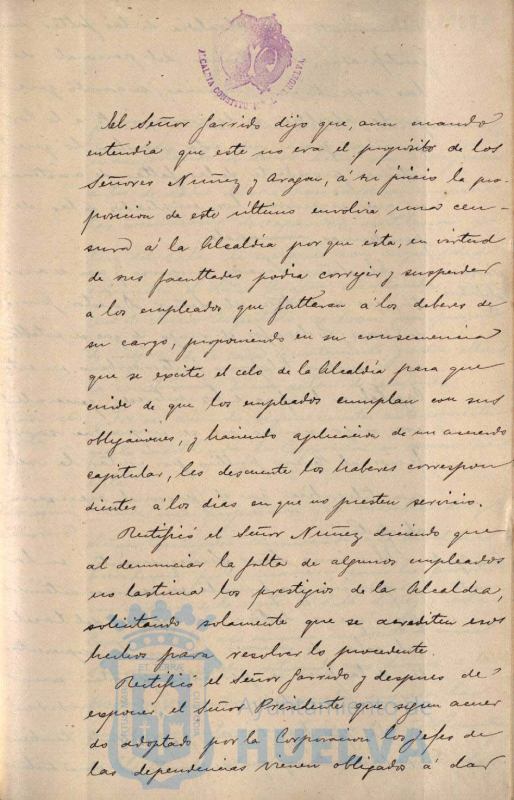 ALCALDIA CONSTITUCIONAL HUELVA
El Señor Garrido dijo que, aun cuando
entendía que este no era el propósito de los
Señores Nuñez y Aragon, á su juicio la pro-
posicion de este último envolvia una cen-
sura á la Alcaldía porque ésta, en virtud
de sus facultades podia correjer y suspender
á los empleados que faltaran á los deberes de
su cargo, proponiendo en su consecuencia
que se excite el celo de la Alcaldía para que
cuide de que los empleados cumplan con sus
obligaciones, y haciendo aplicacion de un acuerdo
capitular, les descuente los haberes correspon
dientes á los dias en que no presten servicio.
Rectificó el Señor Nuñez diciendo que
al denunciar la falta de algunos empleados
no lastima los prestigios de la Alcaldia,
solicitando solamente que se acrediten esos
hechos para resolver lo procedente
Rectificó el Señor Garrido y despues de
exponer el Señor Presidente que segun acuer
do adoptado por la Corporacion los jefes de
las dependencias vienen obligados á dar
Ayuntamiento de
HUELVA